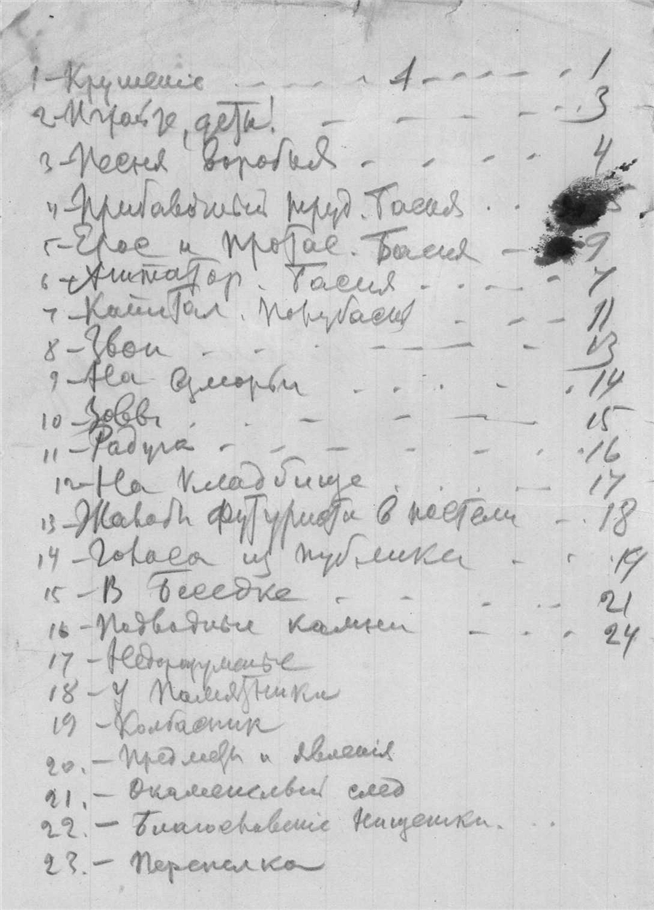 1 - Крушенiе - - - - 1 - - - - 1
2 - Играйте, дети! - - - - 3
3 - Песня воробья - - - - 4
4 - Прибавочный труд. Басня . .
5 - Ерос и Протас. Басня - - 9
6 - Агитатор. Басня . . . . 7
7 - Капитал. Полубасня - - - 11
8 - Звон . . - - - - 13
9 - На взморьи - . . . . 14
10 - Зовы . - - - - 15
11 - Радуга - - - - - 16
12 - На кладбище . . . - 17
13 - Жалобы футуриста в постели - . 18
14 - Голоса из публики - . . 19
15 - В Беседке - - . . 21
16 - Подводные камни - - . 24
17 - Недоразуменье
18 - У Памятника
19 - Колбасник
20. - Предметы и явленiя
21. - Окаменелый след
22. - Благословенiе Нищенки. . .
23. - Перепелка